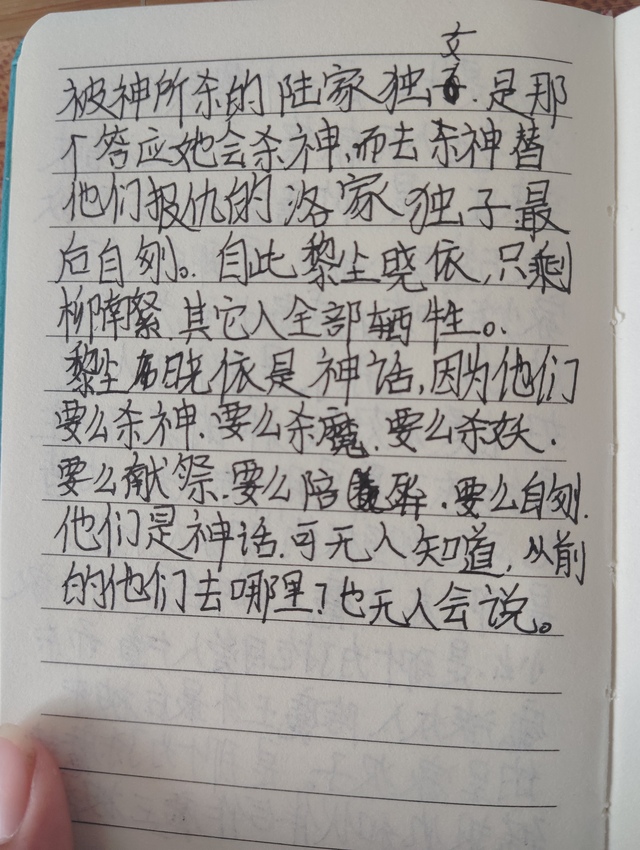 被神所杀的陆家独女.是那
个答应她会杀神,而去杀神替
他们报仇的洛家独子最
后自刎。.自此黎尘晓依,只剩
柳南繄.其它人全部牺牲。.
黎尘晓依是神话,因为他们
要么杀神.要么杀魔.要么杀妖.
要么献祭.要么陪葬.要么自刎.
他们是神话.可无人知道,从前
的他们去哪里了也无人会说。